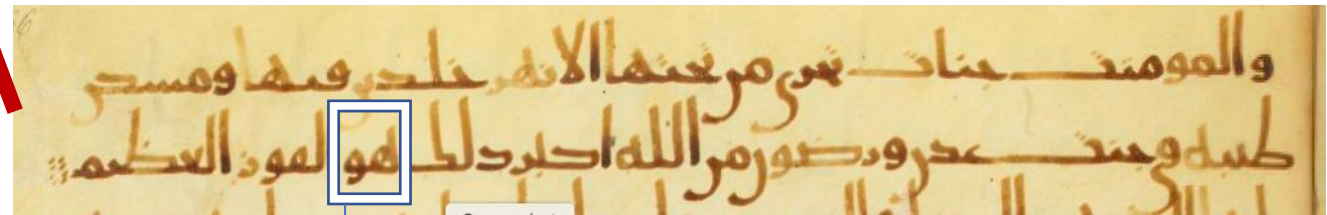 والمومنت جنات تجرى من تحتها الانهر خلدين فيها ومسكن
طيبة فى جنت عدن ورضون من الله اكبر ذلك هو الفوز العظيم